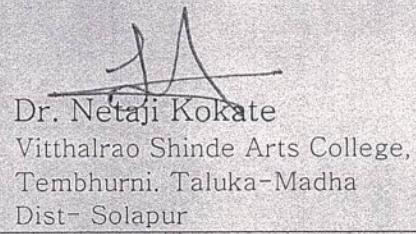 Dr. Netaji Kokate
Vitthalrao Shinde Arts College,
Tembhurni. Taluka-Madha
Dist- Solapur